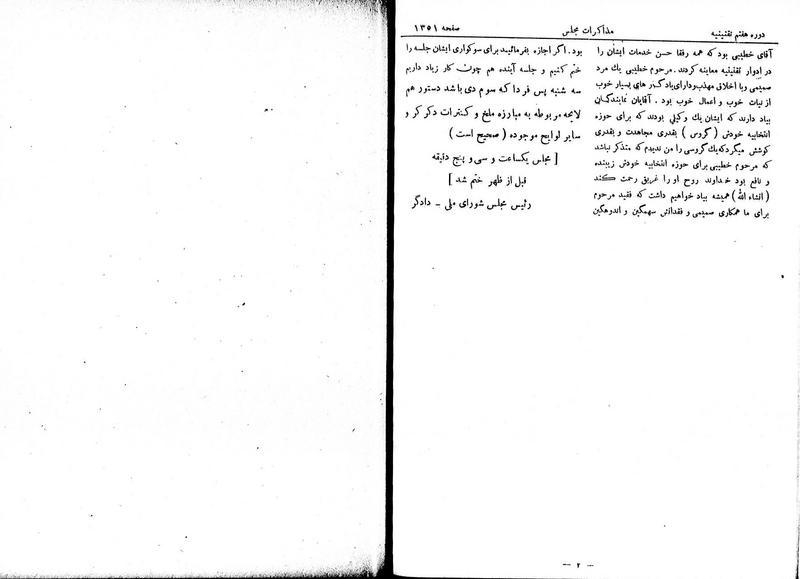 دوره هفتم تقنینیه
مذاکرات مجلس
صفحه ۱۳۵۱
آقای خطیبی بود که همه رفقا حسن خدمات ایشان را
در ادوار تقنینیه معاینه کردند. مرحوم خطیبی یك مرد
صمیمی وبا اخلاق مهذب ودارای یادگار های بسیار خوب
از نیات خوب و اعمال خوب بود . آقایان نمایندگان
بیاد دارند که ایشان یك وکیلی بودند که برای حوزه
انتخابیه خودش ( گروس ) بقدری مجاهدت و بقدری
کوشش میکرد که یك گروسی را من ندیدم که متذکر نباشد
که مرحوم خطیبی برای حوزه انتخابیه خودش زیبنده
و نافع بود خداوند روح او را غریق رحمت کند
( انشاء الله ) همیشه بیاد خواهیم داشت که فقید مرحوم
برای ما همکاری صمیمی و فقدانش سهمگین و اندوهگین
بود. اگر اجازه بفرمائید برای سوگواری ایشان جلسه را
ختم کنیم و جلسه آینده هم چون کار زیاد داریم
سه شنبه پس فردا که سوم دی باشد دستور هم
لایحه مربوطه به مبارزه ملخ و کنترات دکر کر و
سایر لوایح موجوده ( صحیح است )
[ مجلس یکساعت و سی و پنج دقیقه
قبل از ظهر ختم شد ]
رئیس مجلس شورای ملی - دادگر
— ۲ —